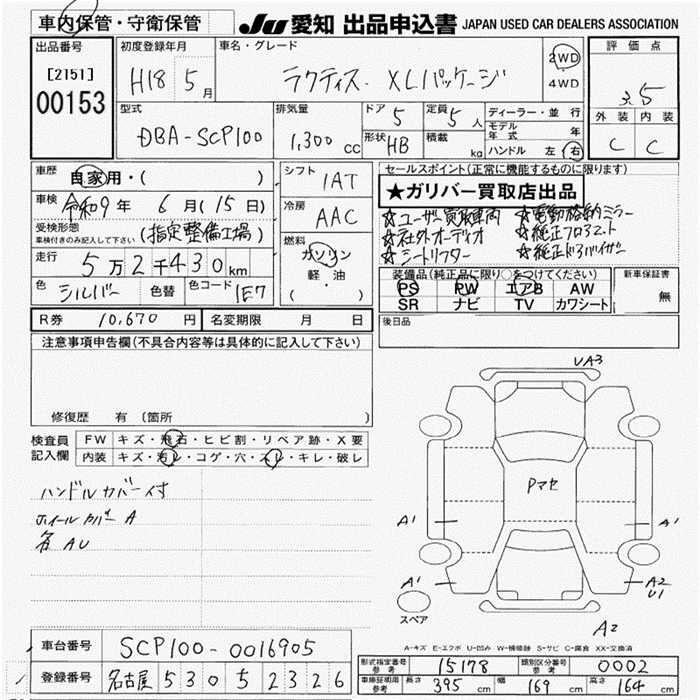 車内保管・守衛保管
JU 愛知 出品申込書 JAPAN USED CAR DEALERS ASSOCIATION
出品番号 [2151] 00153
初度登録年月 H18 5月
車名・グレード ラクティス・XLパッケージ
2WD・4WD
評価点 3.5
外装 C 内装 C
型式 DBA-SCP100
排気量 1,300cc
ドア 5 定員 5人
形状 HB 積載 kg
ディーラー・並行
モデル年式 年
ハンドル 左・右
車歴 自家用・( )
車検 令和9年 6月(15日)
受検形態 車検付きのみ記入して下さい (指定整備工場)
走行 5万2千430km
色 シルバー 色替 色コード 1E7
シフト IAT
冷房 AAC
燃料 ガソリン 軽油 ( ・ )
セールスポイント(正常に機能するものに限ります。)
★ガリバー買取店出品
☆ユーザー買取車両 ☆電動格納ミラー
☆社外オーディオ ☆純正フロアマット
☆シートリフター ☆純正ドアバイザー
装備品(純正品に限り○をつけてください)
PS PW エアB AW
SR ナビ TV カワシート
新車保証書 無
R券 10,670円 名変期限 月 日
後日品
注意事項申告欄(不具合内容等は具体的に記入して下さい)
修復歴 有 (箇所
検査員記入欄
FW キズ・飛石・ヒビ割・リペア跡・X要
内装 キズ・汚レ・コゲ・穴・スレ・キレ・破レ
ハンドルカバー付
ホイールカバー A
各 AU
UA3
Pマセ
A1 A1
A1 A2 U1
スペア
A2
A-キズ E-エクボ U-凹み W-補修跡 S-サビ C-腐食 XX-交換済
車台番号 SCP100-0016905
登録番号 名古屋 530 52326
形式指定番号 参考 15178 類別区分番号 参考 0002
車庫証明用 参考 長さ 395cm 幅 169cm 高さ 164cm